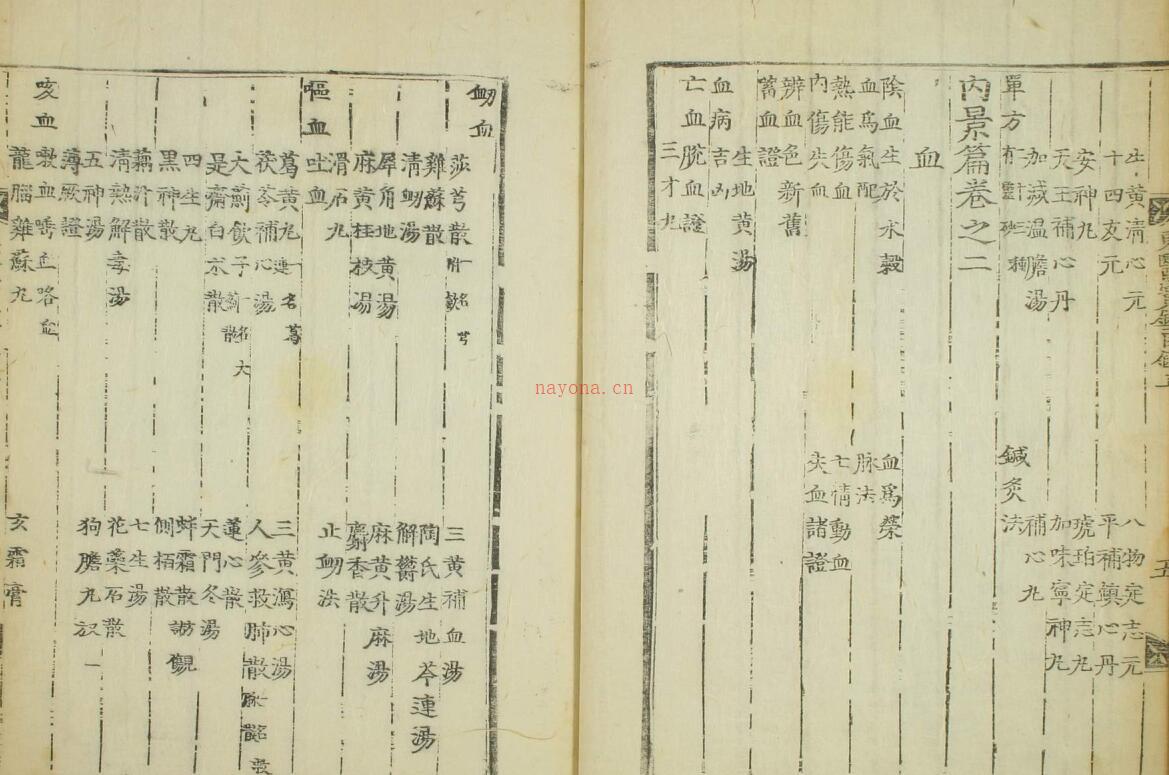 牛黃清心元 八物定志元
十四友元 平補鎭心丹
安神丸 琥珀定志丸
天王補心丹 加味寧神丸
加減温膽湯 補心丸
單方 鍼灸法
內景篇卷之二
血
陰血生於水穀 血爲榮
血爲氣配 脉法
熱能傷血 七情動血
內傷失血 失血諸證
辨血色新舊
蓄血證
血病吉凶
生地黃湯
亡血脫血證
三才丸
五
衂血
莎芎散 三黃補血湯
雞蘇散 陶氏生地芩連湯
清衂湯 解鬱湯
犀角地黃湯 麻黃升麻湯
麻黃桂枝湯 麝香散
滑石丸 止衂法
嘔血
吐血
葛黃丸 三黃瀉心湯
茯苓補心湯 人參救肺散
大薊飲子 蓮心散
是齋白朮散 天門冬湯
四生丸 蚌霜散
黑神散 側栢散
藕汁散 七生湯
清熱解毒湯 花蘂石散
五神湯 狗膽丸
薄厥證
咳血
嗽血唾血咯血
龍腦雞蘇丸 玄霜膏
nayona.cn